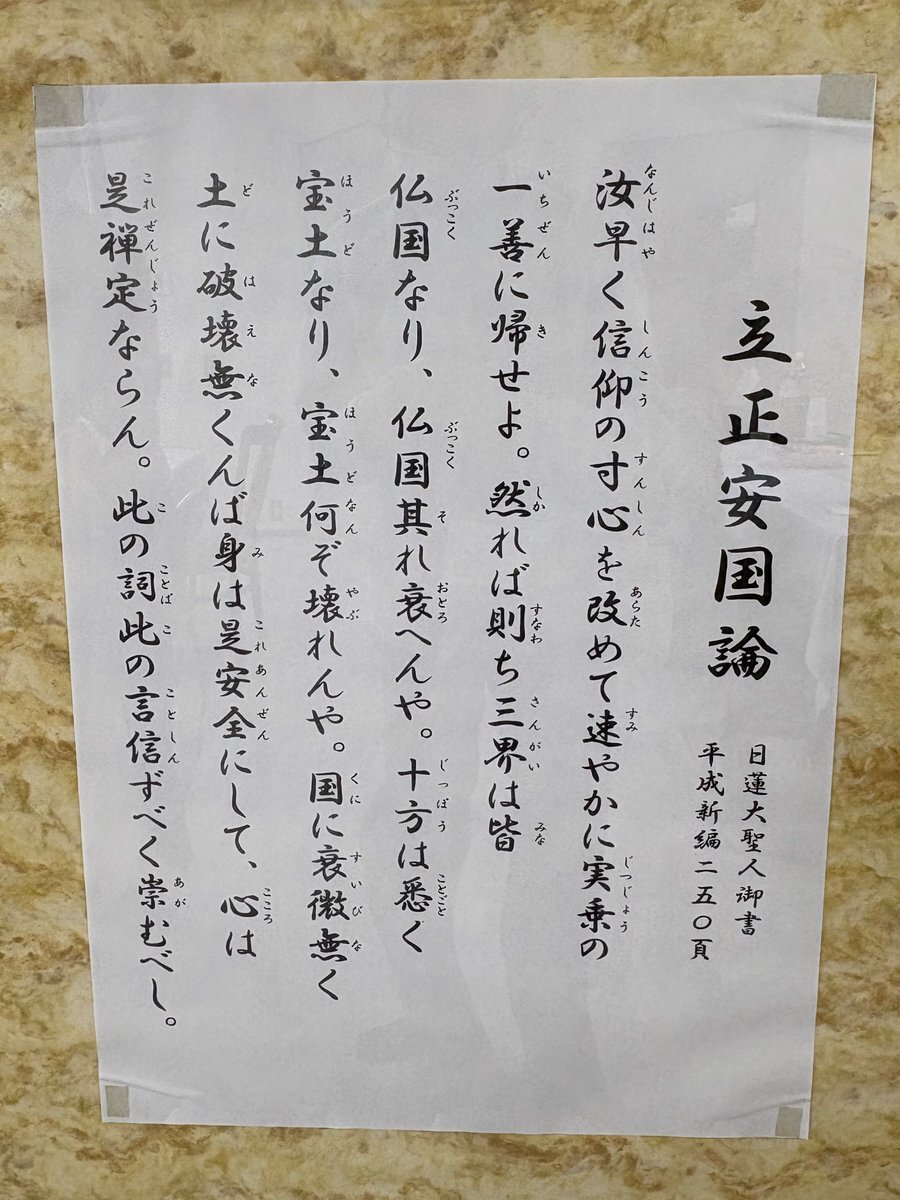 立正安国論
日蓮大聖人御書
平成新編二五〇頁
汝早く信仰の寸心を改めて速やかに実乗の
一善に帰せよ。然れば則ち三界は皆
仏国なり、仏国其れ衰へんや。十方は悉く
宝土なり、宝土何ぞ壊れんや。国に衰微無く
土に破壊無くんば身は是安全にして、心は
是禅定ならん。此の詞此の言信ずべく崇むべし。